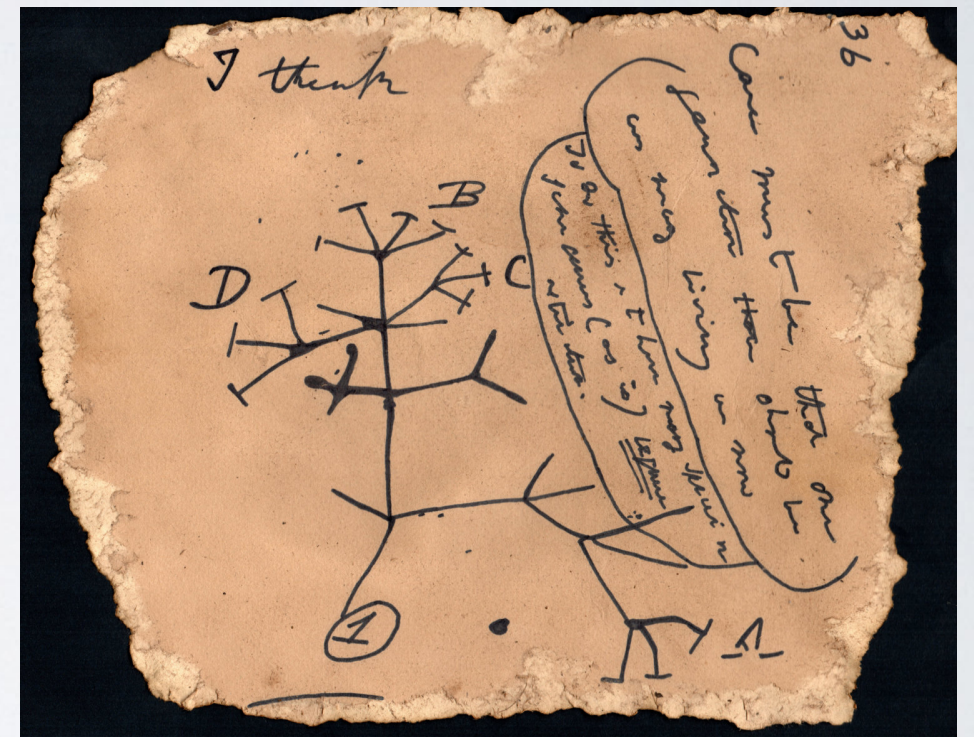 I think
36
Case must be that one
generation then should be
as many living as now
To do this & to have many species in
same genus (as is) requires
extinction.
B
D
C
A
1